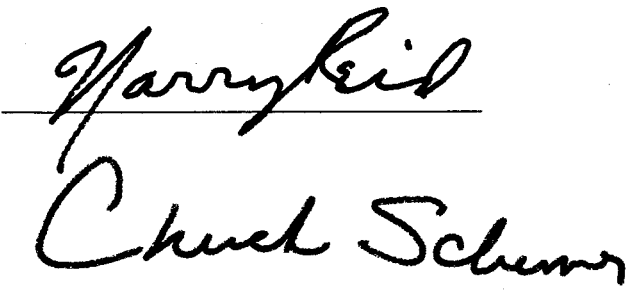 Harry Reid
Chuck Schumer